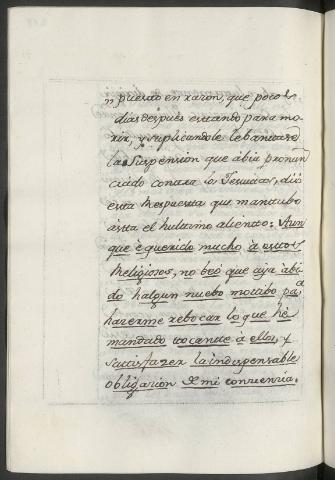 n puesto en raron, que pocos
dias despues estando para mo
rir, y suplicandole lebantase
la Suspension que abia pronun
ciado contra lo Jesuitas, dió
esta Respuesta que mantubo
asta el hultimo aliento: Aun
que é querido mucho, a estos
Religiosos, no beo que aya abi
do halgun nuebo motibo pa.ª
harerme rebocar lo que he
mandado tocante a ellos, y
sattisfazer la indispensable
obligasion de mi conrienria.